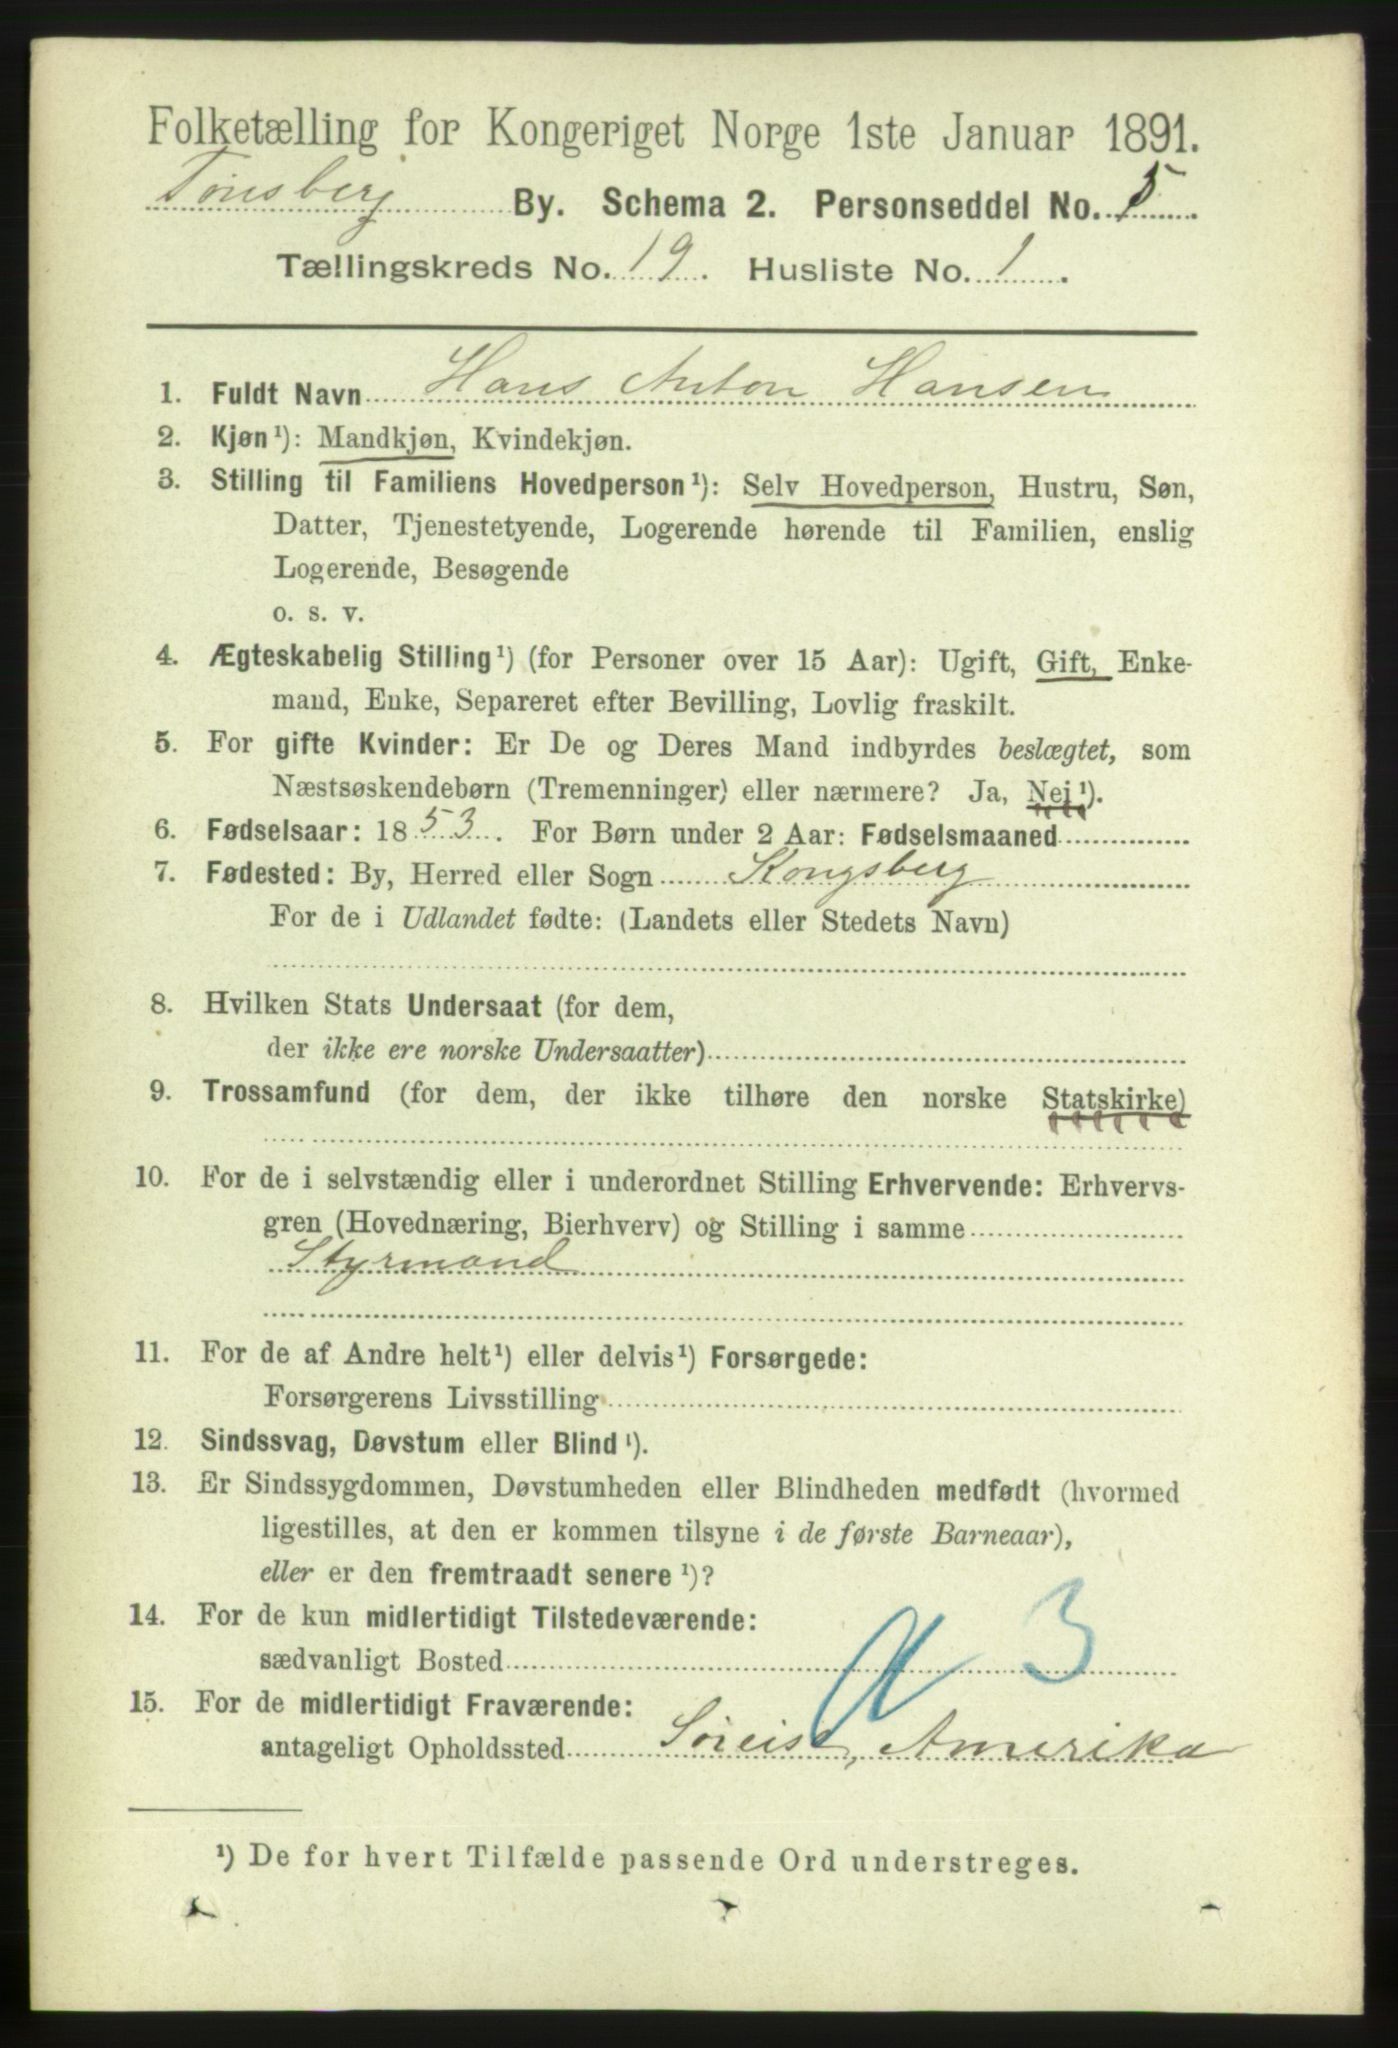 Folketælling for Kongeriget Norge 1ste Januar 1891.
Tønsberg By. Schema 2. Personseddel No. 5
Tællingskreds No. 19. Husliste No. 1.
1. Fuldt Navn Hans Anton Hansen
2. Kjøn¹): Mandkjøn, Kvindekjøn.
3. Stilling til Familiens Hovedperson¹): Selv Hovedperson, Hustru, Søn,
Datter, Tjenestetyende, Logerende hørende til Familien, enslig
Logerende, Besøgende
o. s. v.
4. Ægteskabelig Stilling¹) (for Personer over 15 Aar): Ugift, Gift, Enke-
mand, Enke, Separeret efter Bevilling, Lovlig fraskilt.
5. For gifte Kvinder: Er De og Deres Mand indbyrdes beslægtet, som
Næstsøskendebørn (Tremenninger) eller nærmere? Ja, Nej¹).
6. Fødselsaar: 1853. For Børn under 2 Aar: Fødselsmaaned
7. Fødested: By, Herred eller Sogn Kongsberg
For de i Udlandet fødte: (Landets eller Stedets Navn)
8. Hvilken Stats Undersaat (for dem,
der ikke ere norske Undersaatter)
9. Trossamfund (for dem, der ikke tilhøre den norske Statskirke)
10. For de i selvstændig eller i underordnet Stilling Erhvervende: Erhvervs-
gren (Hovednæring, Bierhverv) og Stilling i samme
Styrmand
11. For de af Andre helt¹) eller delvis¹) Forsørgede:
Forsørgerens Livsstilling
12. Sindssvag, Døvstum eller Blind¹).
13. Er Sindssygdommen, Døvstumheden eller Blindheden medfødt (hvormed
ligestilles, at den er kommen tilsyne i de første Barneaar),
eller er den fremtraadt senere¹)?
14. For de kun midlertidigt Tilstedeværende: 3
sædvanligt Bosted
15. For de midlertidigt Fraværende:
antageligt Opholdssted Amerika
¹) De for hvert Tilfælde passende Ord understreges.